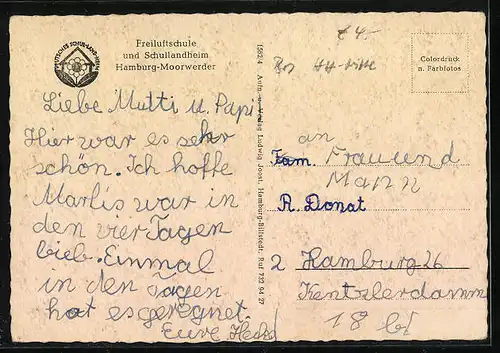 Freiluftschule
und Schullandheim
Hamburg-Moorwerder
Liebe Mutti u. Papi
Hier war es sehr
schön. Ich hoffe
Marlis war in
den vier Tagen
lieb. Einmal
in den Tagen
hat es geregnet.
Eure
1502/4 Aufn. u. Verlag Ludwig Joost, Hamburg-Billstedt, Ruf 732 94 27
€4.-
Colordruck
n. Farbfotos
an
Fam. Frau und
Mann
R. Donat
2 Hamburg 26
Kentzlerdamm
18 b1